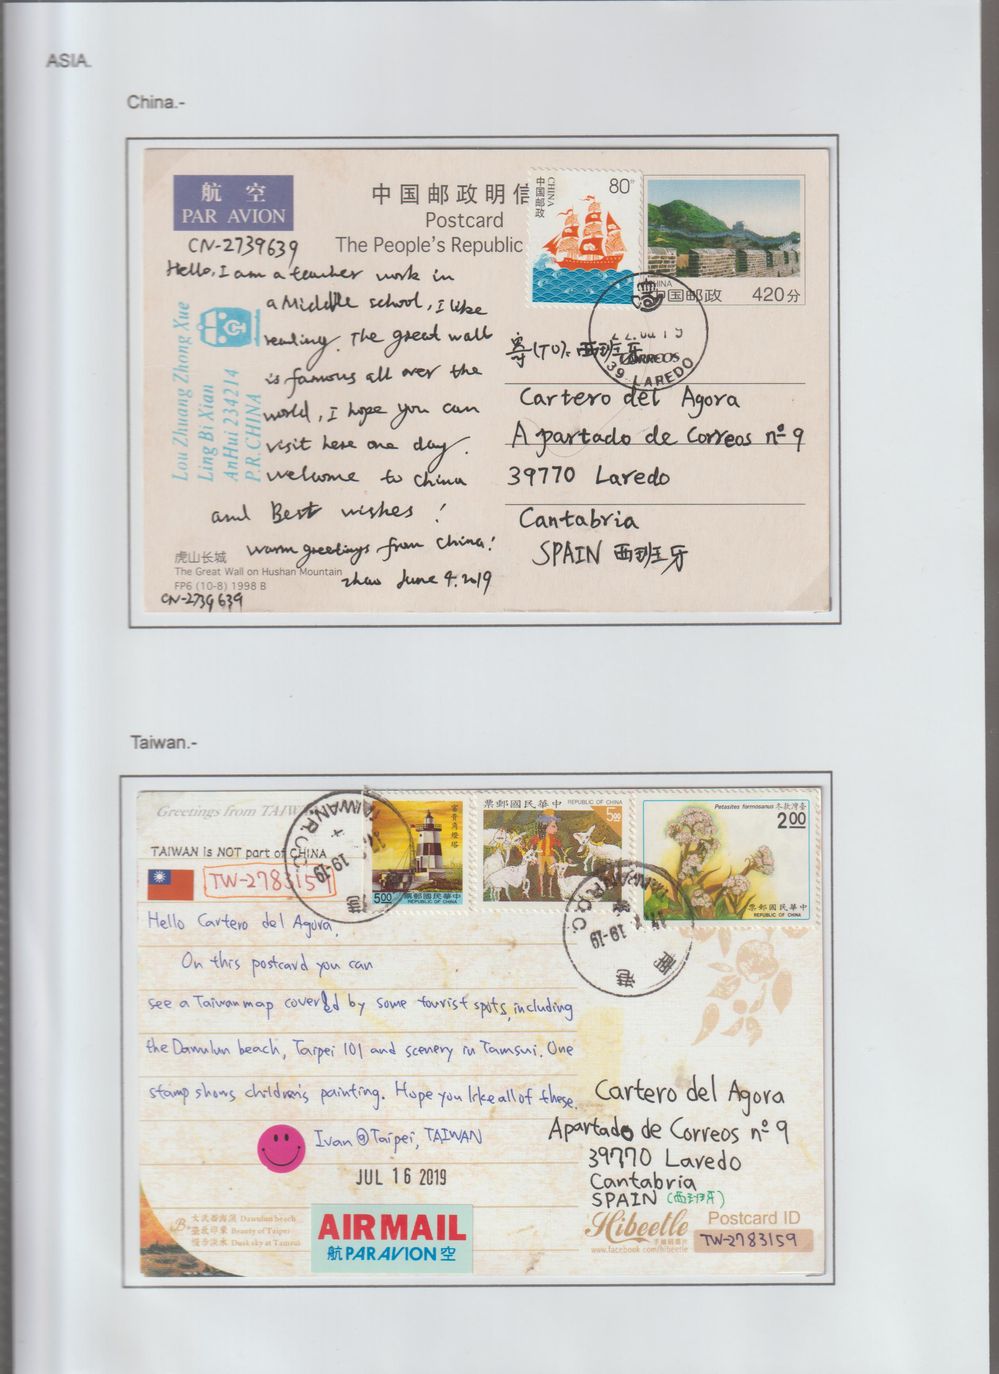 ASIA.
China.-
航 空
PAR AVION
中国邮政明信
Postcard
The People's Republic
中国邮政
CHINA
80分
中国邮政
420分
CN-2739639
Hello, I am a teacher work in
a Middle school, I like
reading. The great wall
is famous all over the
world, I hope you can
visit here one day.
welcome to China
and Best wishes!
warm greetings from China!
zhao June 4. 2019
Lou Zhuang Zhong Xue
Ling Bi Xian
AnHui 234214
P.R.CHINA
寄(TO): 西班牙
CORREOS
39 LAREDO
Cartero del Agora
Apartado de Correos nº 9
39770 Laredo
Cantabria
SPAIN 西班牙
虎山长城
The Great Wall on Hushan Mountain
FP6 (10-8) 1998 B
CN-2739639
Taiwan.-
Greetings from TAIW
TAIWAN is NOT part of CHINA
TW-2783159
TAIWAN, R.O.C.
19-19
富貴角燈塔
5.00
票郵國民華中
REPUBLIC OF CHINA
票郵國民華中 REPUBLIC OF CHINA
5.00
Petasites formosanus 冬款灣臺
2.00
票郵國民華中
REPUBLIC OF CHINA
R.O.C.
19-19
南港
Hello Cartero del Agora,
On this postcard you can
see a Taiwan map covered by some tourist spots, including
the Dawulun beach, Taipei 101 and scenery in Tamsui. One
stamp shows children's painting. Hope you like all of these.
Ivan @Taipei, TAIWAN
JUL 16 2019
Cartero del Agora
Apartado de Correos nº 9
39770 Laredo
Cantabria
SPAIN (西班牙)
大武崙海灘 Dawulun beach
臺北印象 Beauty of Taipei
慢步淡水 Dusk sky at Tamsui
AIR MAIL
航 PAR AVION 空
Hibeetle
www.facebook.com/hibeetle
Postcard ID
TW-2783159